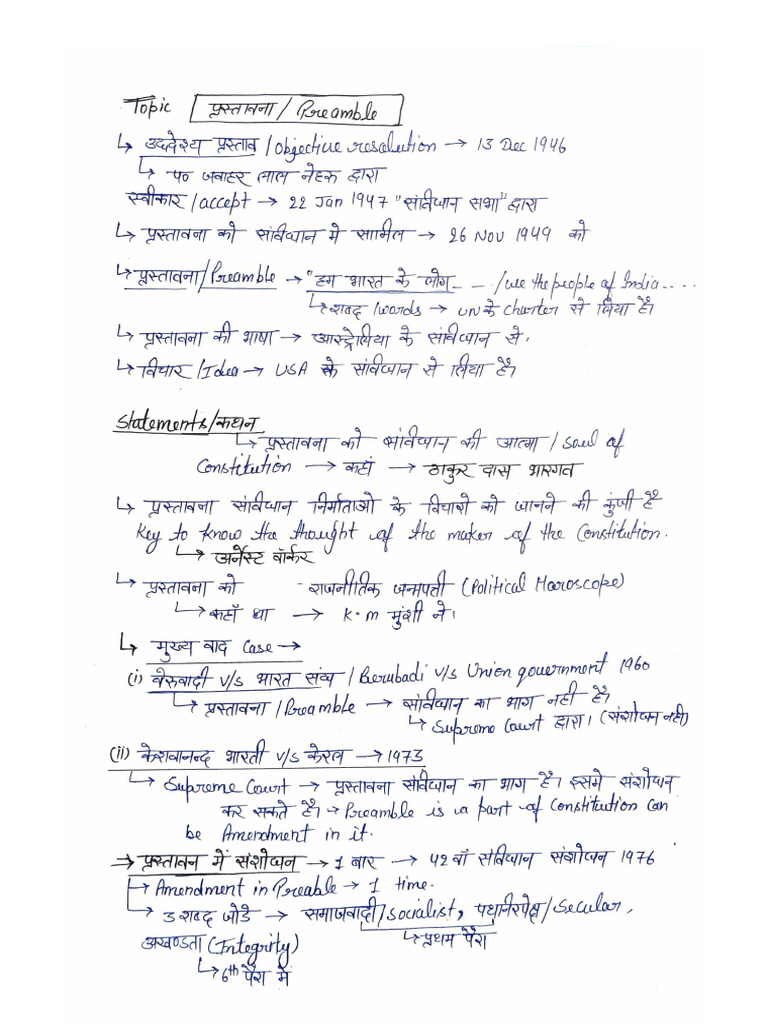 Topic प्रस्तावना / Preamble
↳ उददेश्य प्रस्ताव / Objective resolution → 13 Dec 1946
↳ प० जवाहर लाल नेहरू द्वारा
स्वीकार / accept → 22 Jan 1947 "संविधान सभा" द्वारा
↳ प्रस्तावना को संविधान मे सामिल → 26 Nov 1949 को
↳ प्रस्तावना / Preamble → "हम भारत के लोग - - / we the people of India ....
↳ शब्द / words → UN के Charter से लिया है।
↳ प्रस्तावना की भाषा → आस्ट्रेलिया के संविधान से।
↳ विचार / Idea → USA के संविधान से लिया है।
Statements / कथन
↳ प्रस्तावना को संविधान की आत्मा / Soul of
Constitution → कहां → ठाकुर दास भारगव
↳ प्रस्तावना संविधान निर्माताओ के विचारो को जानने की कुंजी है
Key to know the thought of the maker of the Constitution.
↳ अर्नेस्ट वॉर्कर
↳ प्रस्तावना को राजनीतिक जन्मपत्ती (Political Horoscope)
↳ कहाँ था → K.m मुंशी ने।
↳ मुख्य वाद Case →
(i) वेरुवादी v/s भारत संघ / Berubadi v/s Union government 1960
↳ प्रस्तावना / Preamble → संविधान का भाग नही है।
↳ Supreme Court द्वारा। (संशोधन नही)
(ii) केशवानन्द भारती v/s केरल → 1973
↳ Supreme Court → प्रस्तावना संविधान का भाग है। इसमे संशोधन
कर सकते है। → Preamble is a part of Constitution can
be Amendment in it.
→ प्रस्तावन में संशोधन → 1 बार → 42 वाँ संविधान संशोधन 1976
↳ Amendment in Preable → 1 time.
↳ 3 शब्द जोडे → समाजवादी / Socialist, पथनिरपेक्ष / Secular,
↳ प्रथम पैरा
अखण्डता (Integrity)
↳ 6th पैरा में